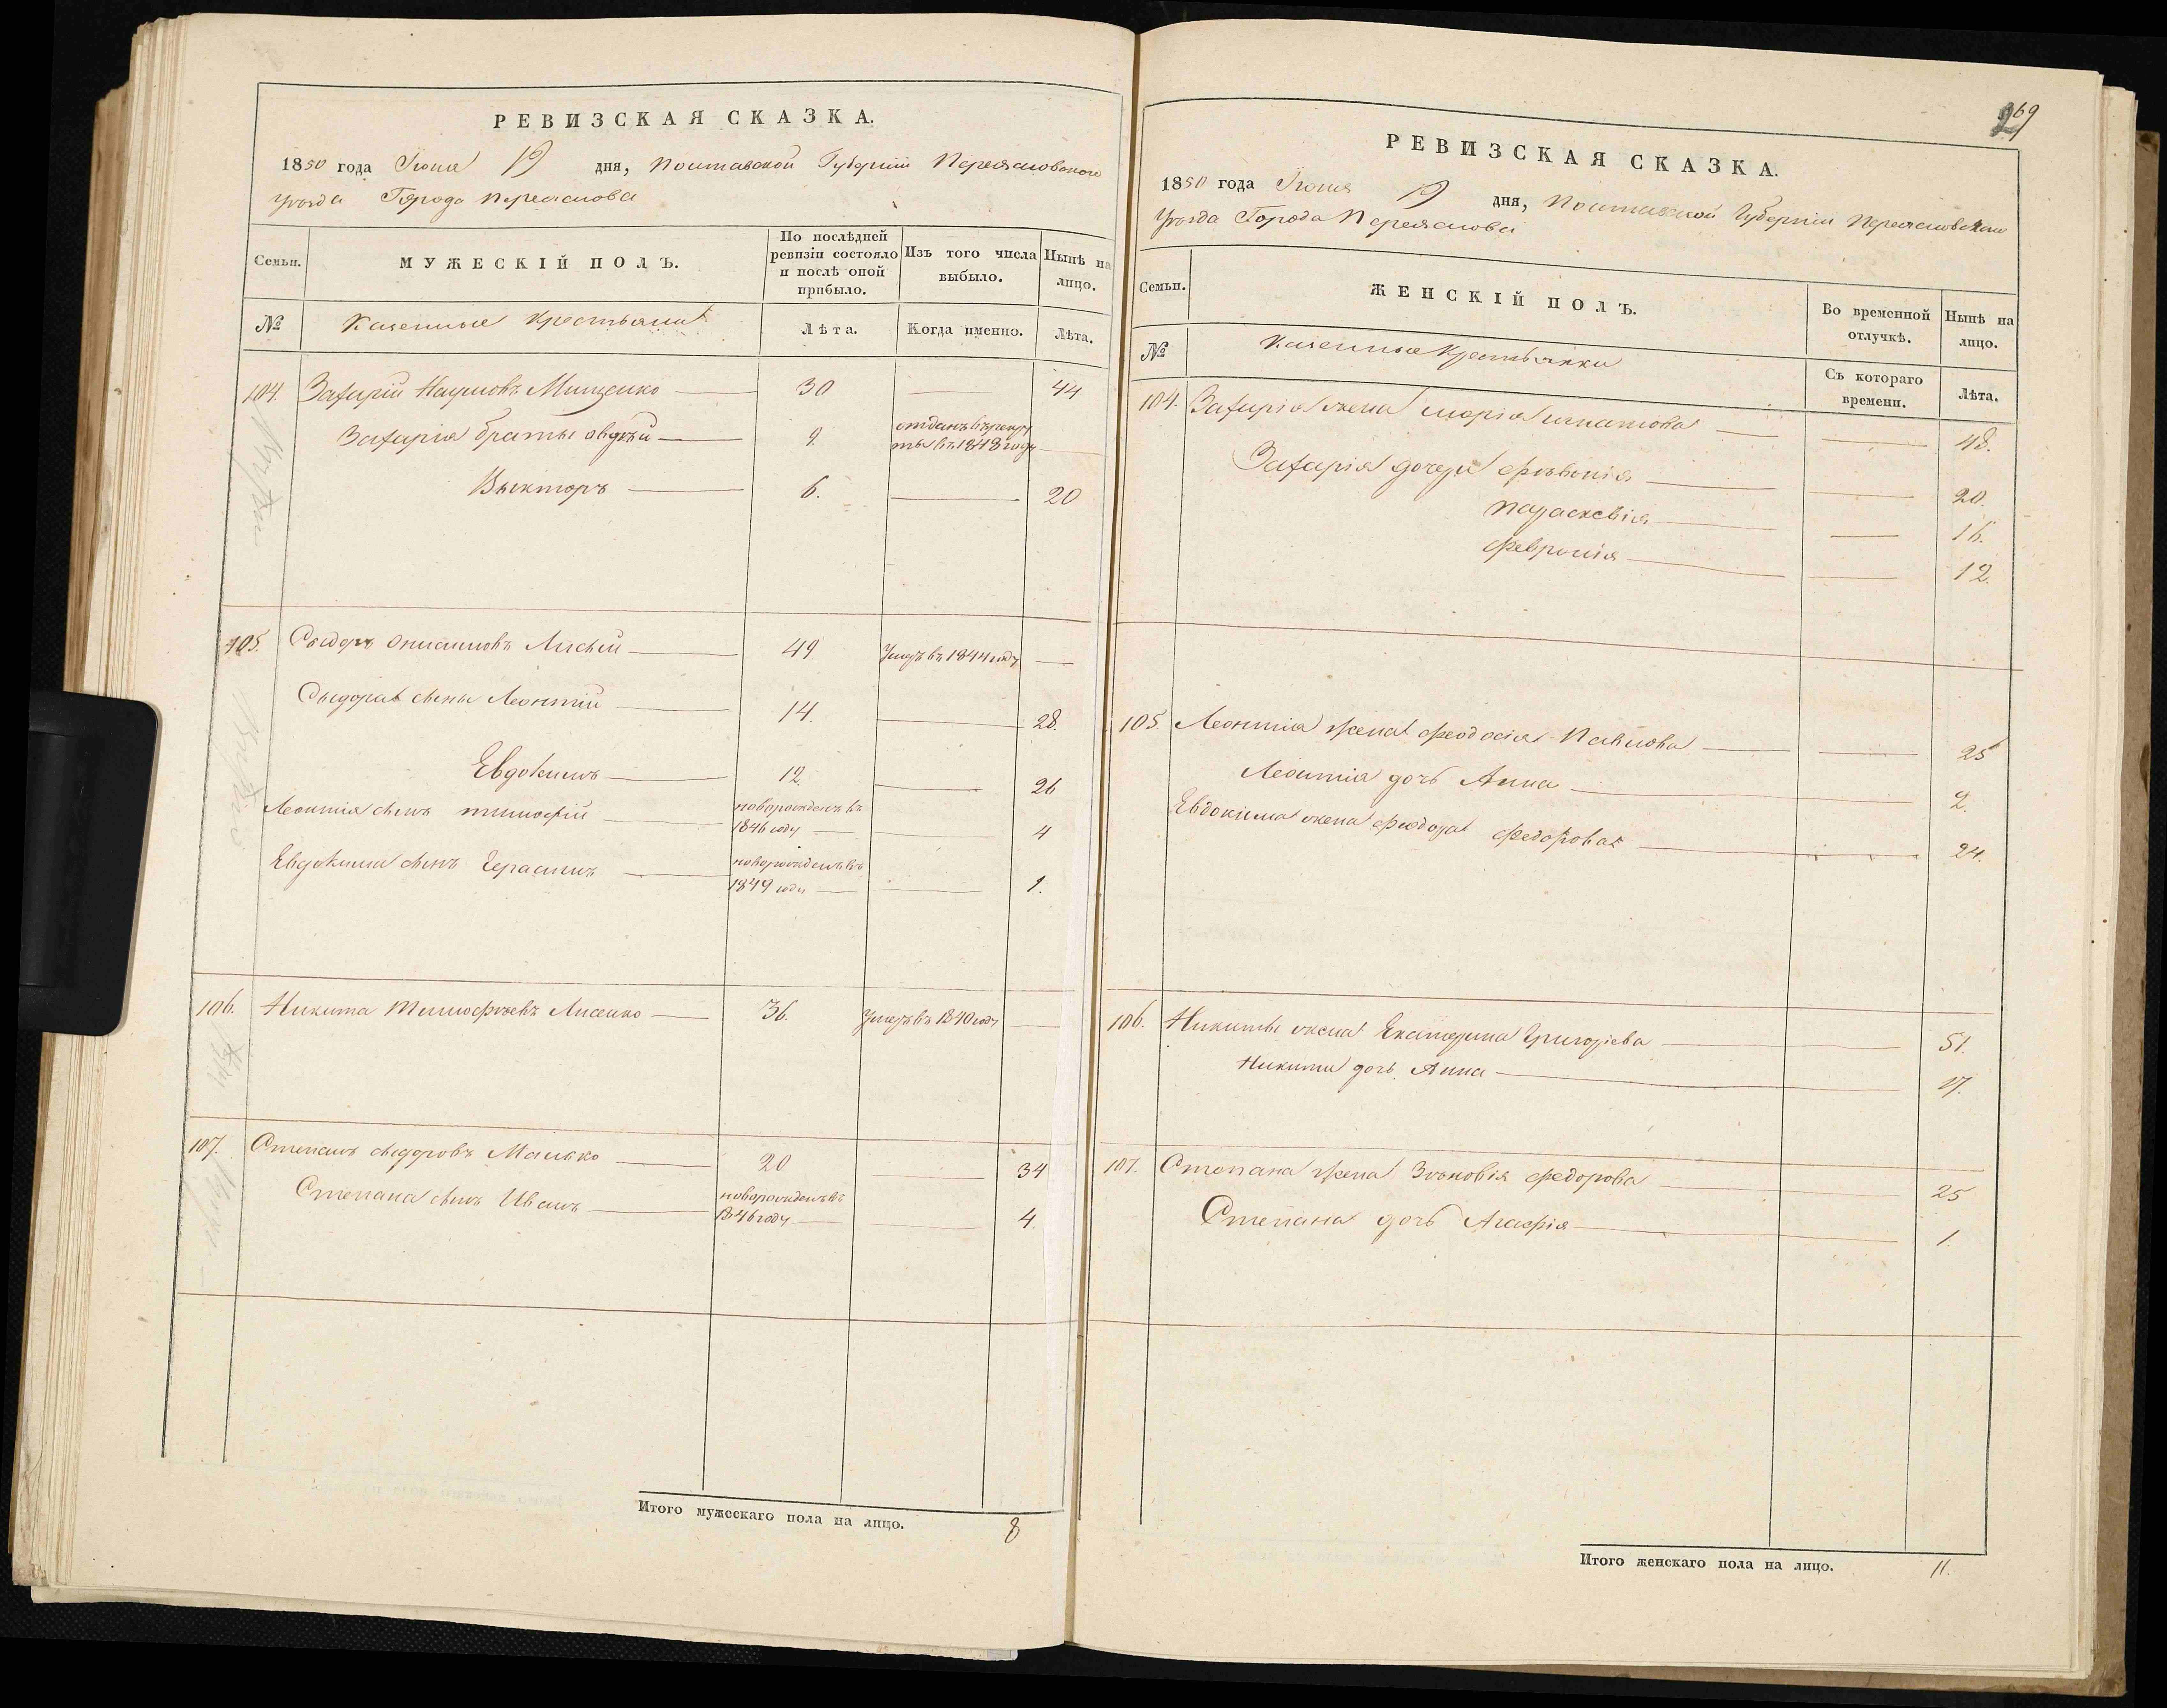 РЕВИЗСКАЯ СКАЗКА.
1850 года Іюня 19 дня, Полтавской Губерніи Переяславского
уѣзда Города Переяслова
Семьи.
МУЖЕСКІЙ ПОЛЪ.
По послѣдней ревизіи состояло и послѣ оной прибыло.
Изъ того числа выбыло.
Нынѣ на лицо.
№
Казенные Крестьяне
Лѣта.
Когда именно.
Лѣта.
104. Захарій Наумовъ Мищенко 30 44
Захарія братья Авдѣй 9. отданъ въ рекруты въ 1848 году
Выкторъ 6. 20
105. Сыдоръ Онисимовъ Лысый 49. Умеръ въ 1844 году
Сыдора сыны Леонтій 14. 28.
Евдокимъ 12. 26
Леонтія сынъ тимофій новорожденъ въ 1846 году 4
Евдокима сынъ Герасимъ новорожденъ въ 1849 году 1.
106. Никита Тимофѣевъ Лисенко 36. Умеръ въ 1840 году
107. Степанъ сыдоровъ Малько 20 34
Степана сынъ Иванъ новорожденъ въ 1846 году 4.
Итого мужескаго пола на лицо. 8
269
РЕВИЗСКАЯ СКАЗКА.
1850 года Іюня 19 дня, Полтавской Губерніи Переяславского
уѣзда Города Переяслова
Семьи.
ЖЕНСКІЙ ПОЛЪ.
Во временной отлучкѣ.
Нынѣ на лицо.
№
Казенные Крестьянки
Съ котораго времени.
Лѣта.
104. Захарія жена марія игнатова 48.
Захарія дочери 20.
параскевія 16.
февронія 12.
105 Леонтія жена феодосія Павлова 25
Леонтія дочь Анна 2.
Евдокима жена феодора федорова 24.
106. Никиты жена Екатерина Григоріева 51.
Никиты дочь Анна 17.
107. Степана жена Зѣновія федорова 25
Степана дочь Агафія 1.
Итого женскаго пола на лицо. 11.